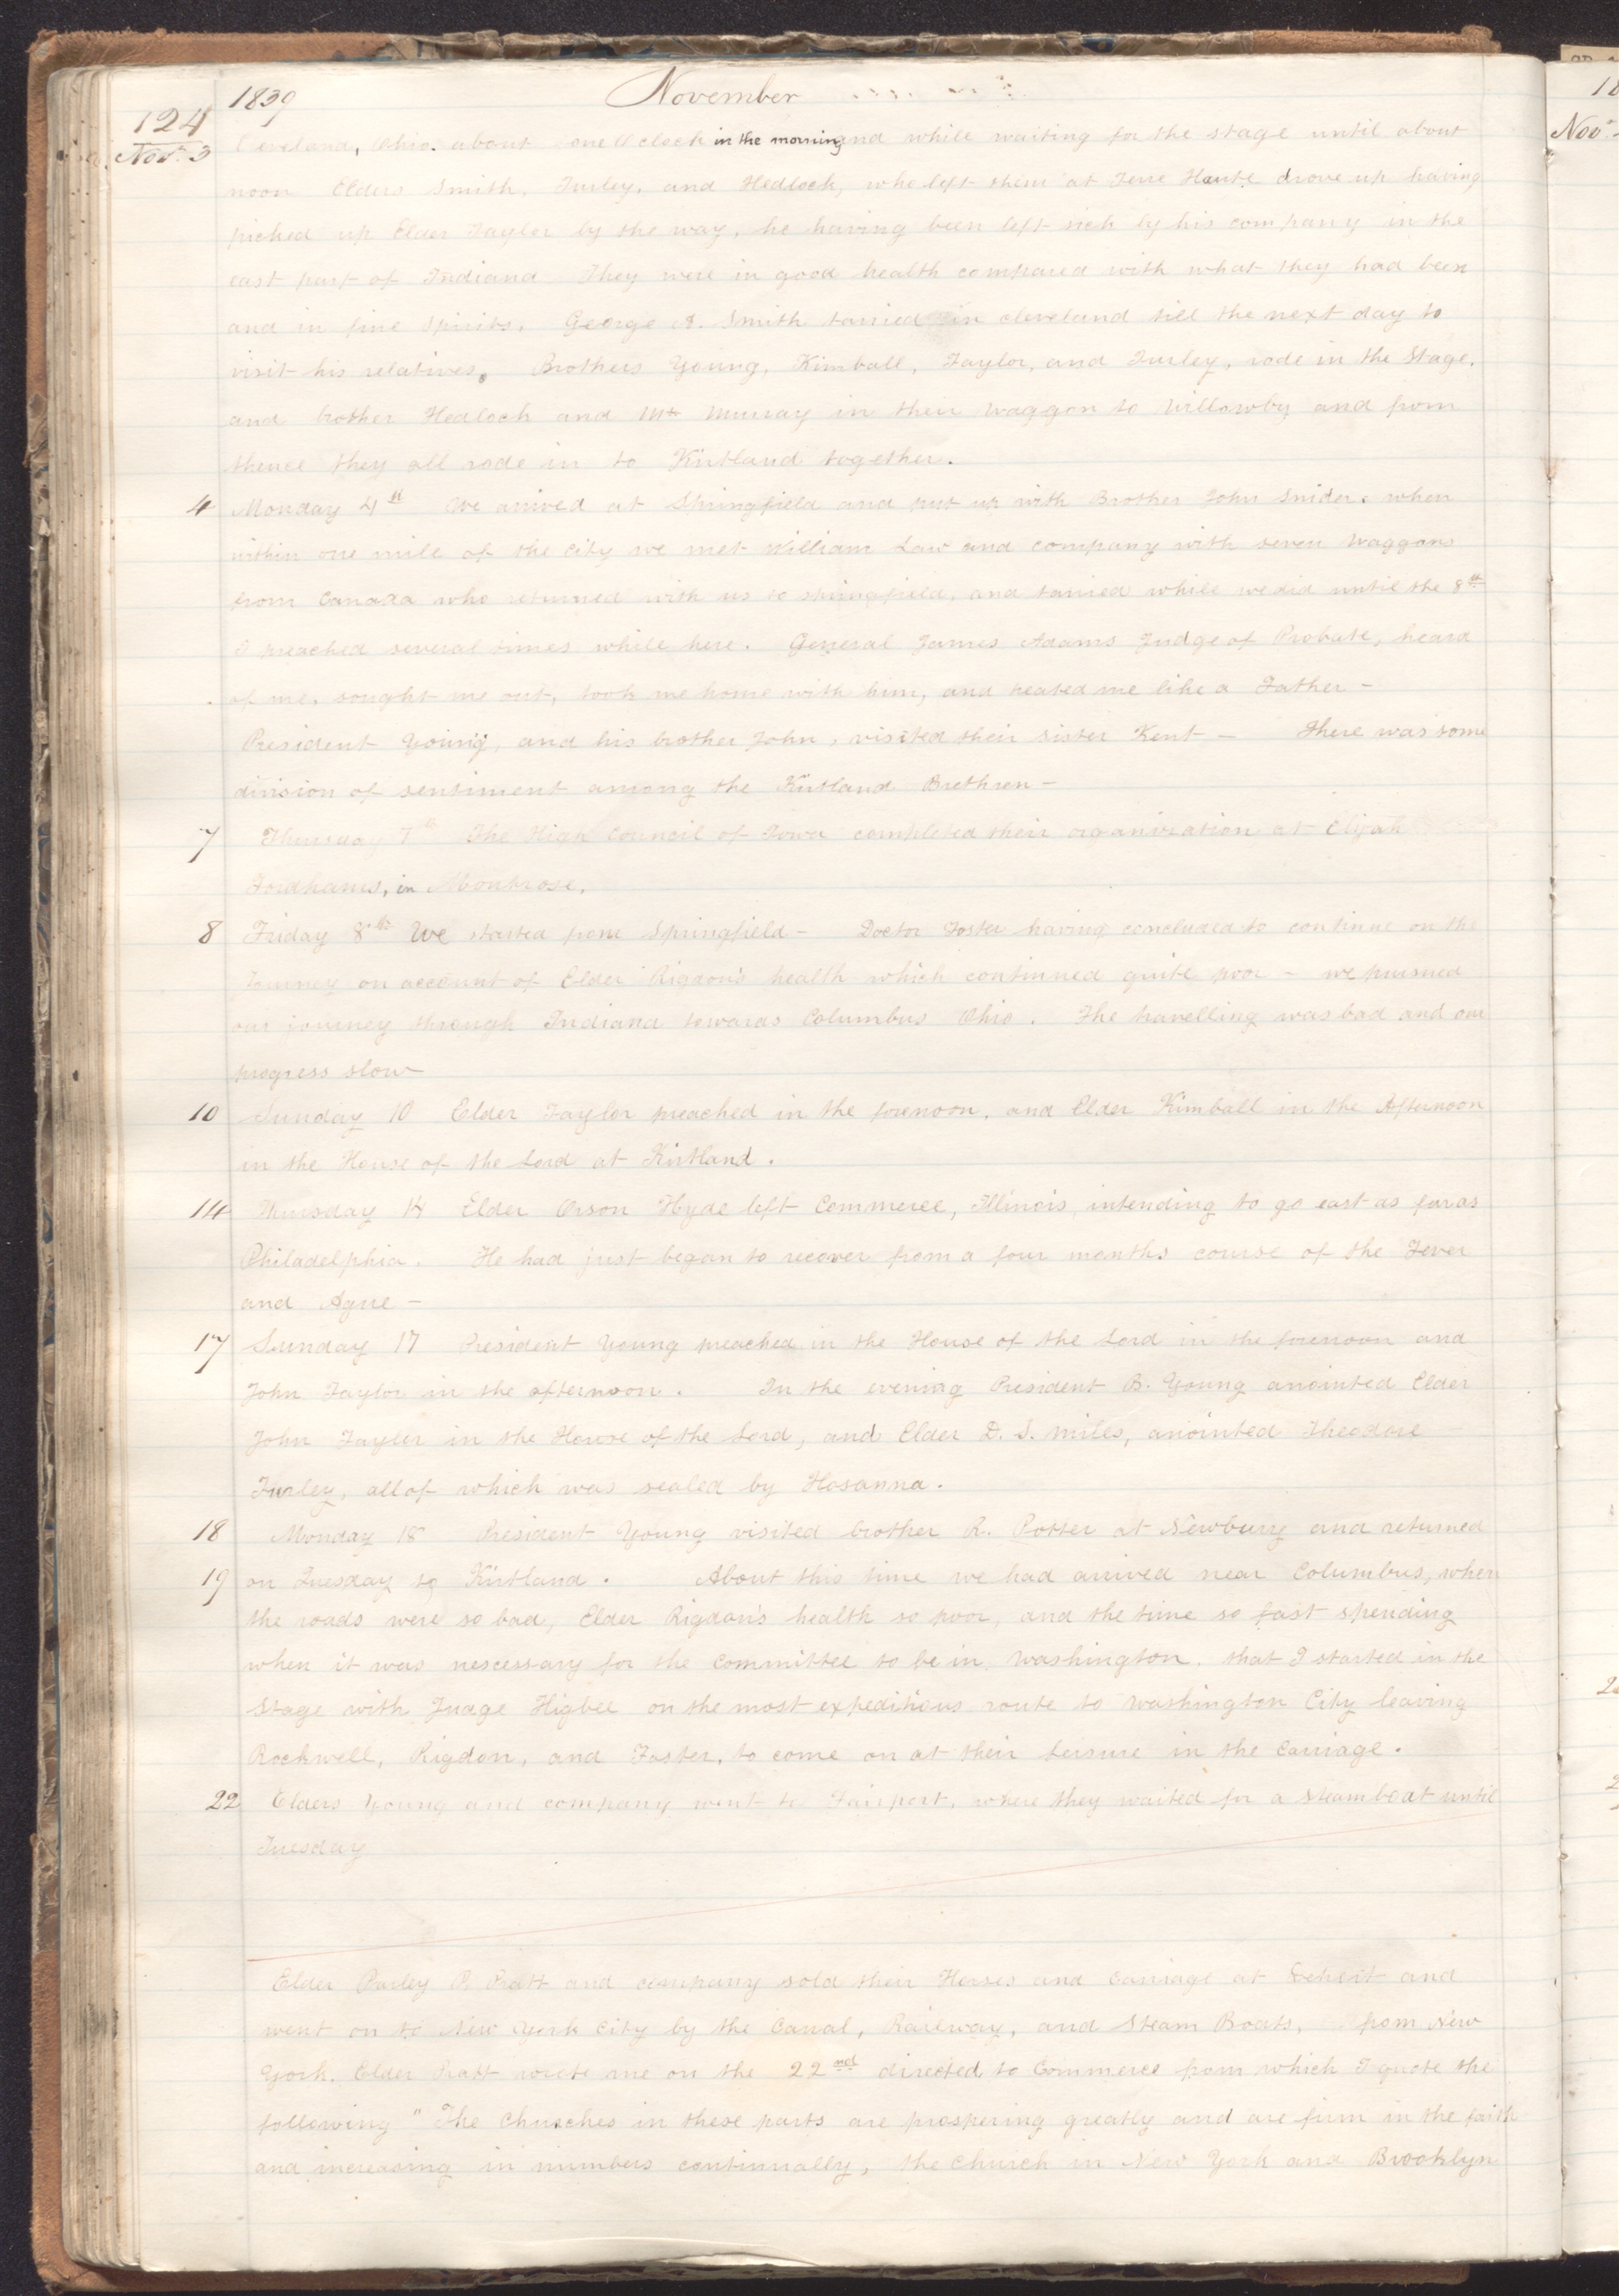 1839 November
124
Nov. 3 Cleveland, Ohio. about one O clock in the morning and while waiting for the stage until about
noon Elders Smith, Turley, and Hedlock, who left them at Terre Haute drove up having
picked up Elder Taylor by the way, he having been left sick by his company in the
east part of Indiana They were in good health compared with what they had been
and in fine spirits. George A. Smith tarried in cleveland till the next day to
visit his relatives. Brothers Young, Kimball, Taylor, and Turley, rode in the Stage.
and brother Hedlock and Mr Murray in their waggon to Willowby and from
thence they all rode in to Kirtland together.
4 Monday 4th We arrived at Springfield and put up with Brother John Snider. when
within one mile of the city we met William Law and company with seven waggons
from Canada who returned with us to springfield, and tarried while we did until the 8th
I preached several times while here. General James Adams Judge of Probate, heard
of me, sought me out, took me home with him, and treated me like a Father –
President Young, and his brother John, visited their sister Kent – There was some
division of sentiment among the Kirtland Brethren –
7 Thursday 7th The High Council of Iowa completed their organization at Elijah
Fordhams, in Montrose.
8 Friday 8th We started from Springfield – Doctor Foster having concluded to continue on the
Journey on account of Elder Rigdon's health which continued quite poor – we pursued
our journey through Indiana towards Columbus Ohio. The travelling was bad and our
progress slow –
10 Sunday 10 Elder Taylor preached in the forenoon, and Elder Kimball in the Afternoon
in the House of the Lord at Kirtland.
14 Thursday 14 Elder Orson Hyde left Commerce, Illinois, intending to go east as far as
Philadelphia. He had just began to recover from a four months course of the Fever
and Ague –
17 Sunday 17 President Young preached in the House of the Lord in the forenoon and
John Taylor in the afternoon. In the evening President B. Young anointed Elder
John Taylor in the House of the Lord, and Elder D. S. Miles, anointed Theodore
Turley, all of which was sealed by Hosanna.
18 Monday 18 President Young visited brother R. Potter at Newbury and returned
19 on Tuesday to Kirtland. About this time we had arrived near Columbus, when
the roads were so bad, Elder Rigdon's health so poor, and the time so fast spending
when it was nescessary for the committee to be in Washington. that I started in the
Stage with Judge Higbee on the most expeditious route to Washington City leaving
Rockwell, Rigdon, and Foster, to come on at their leisure in the Carriage.
22 Elders Young and company went to Fairport, where they waited for a steamboat until
Tuesday
Elder Parley P. Pratt and company sold their Horses and carriage at Detroit and
went on to New York City by the Canal, Railway, and Steam Boats, from New
York. Elder Pratt wrote me on the 22nd directed to Commerce from which I quote the
following "The Churches in these parts are prospering greatly and are firm in the faith
and increasing in numbers continually, the church in New York and Brooklyn
Nov.